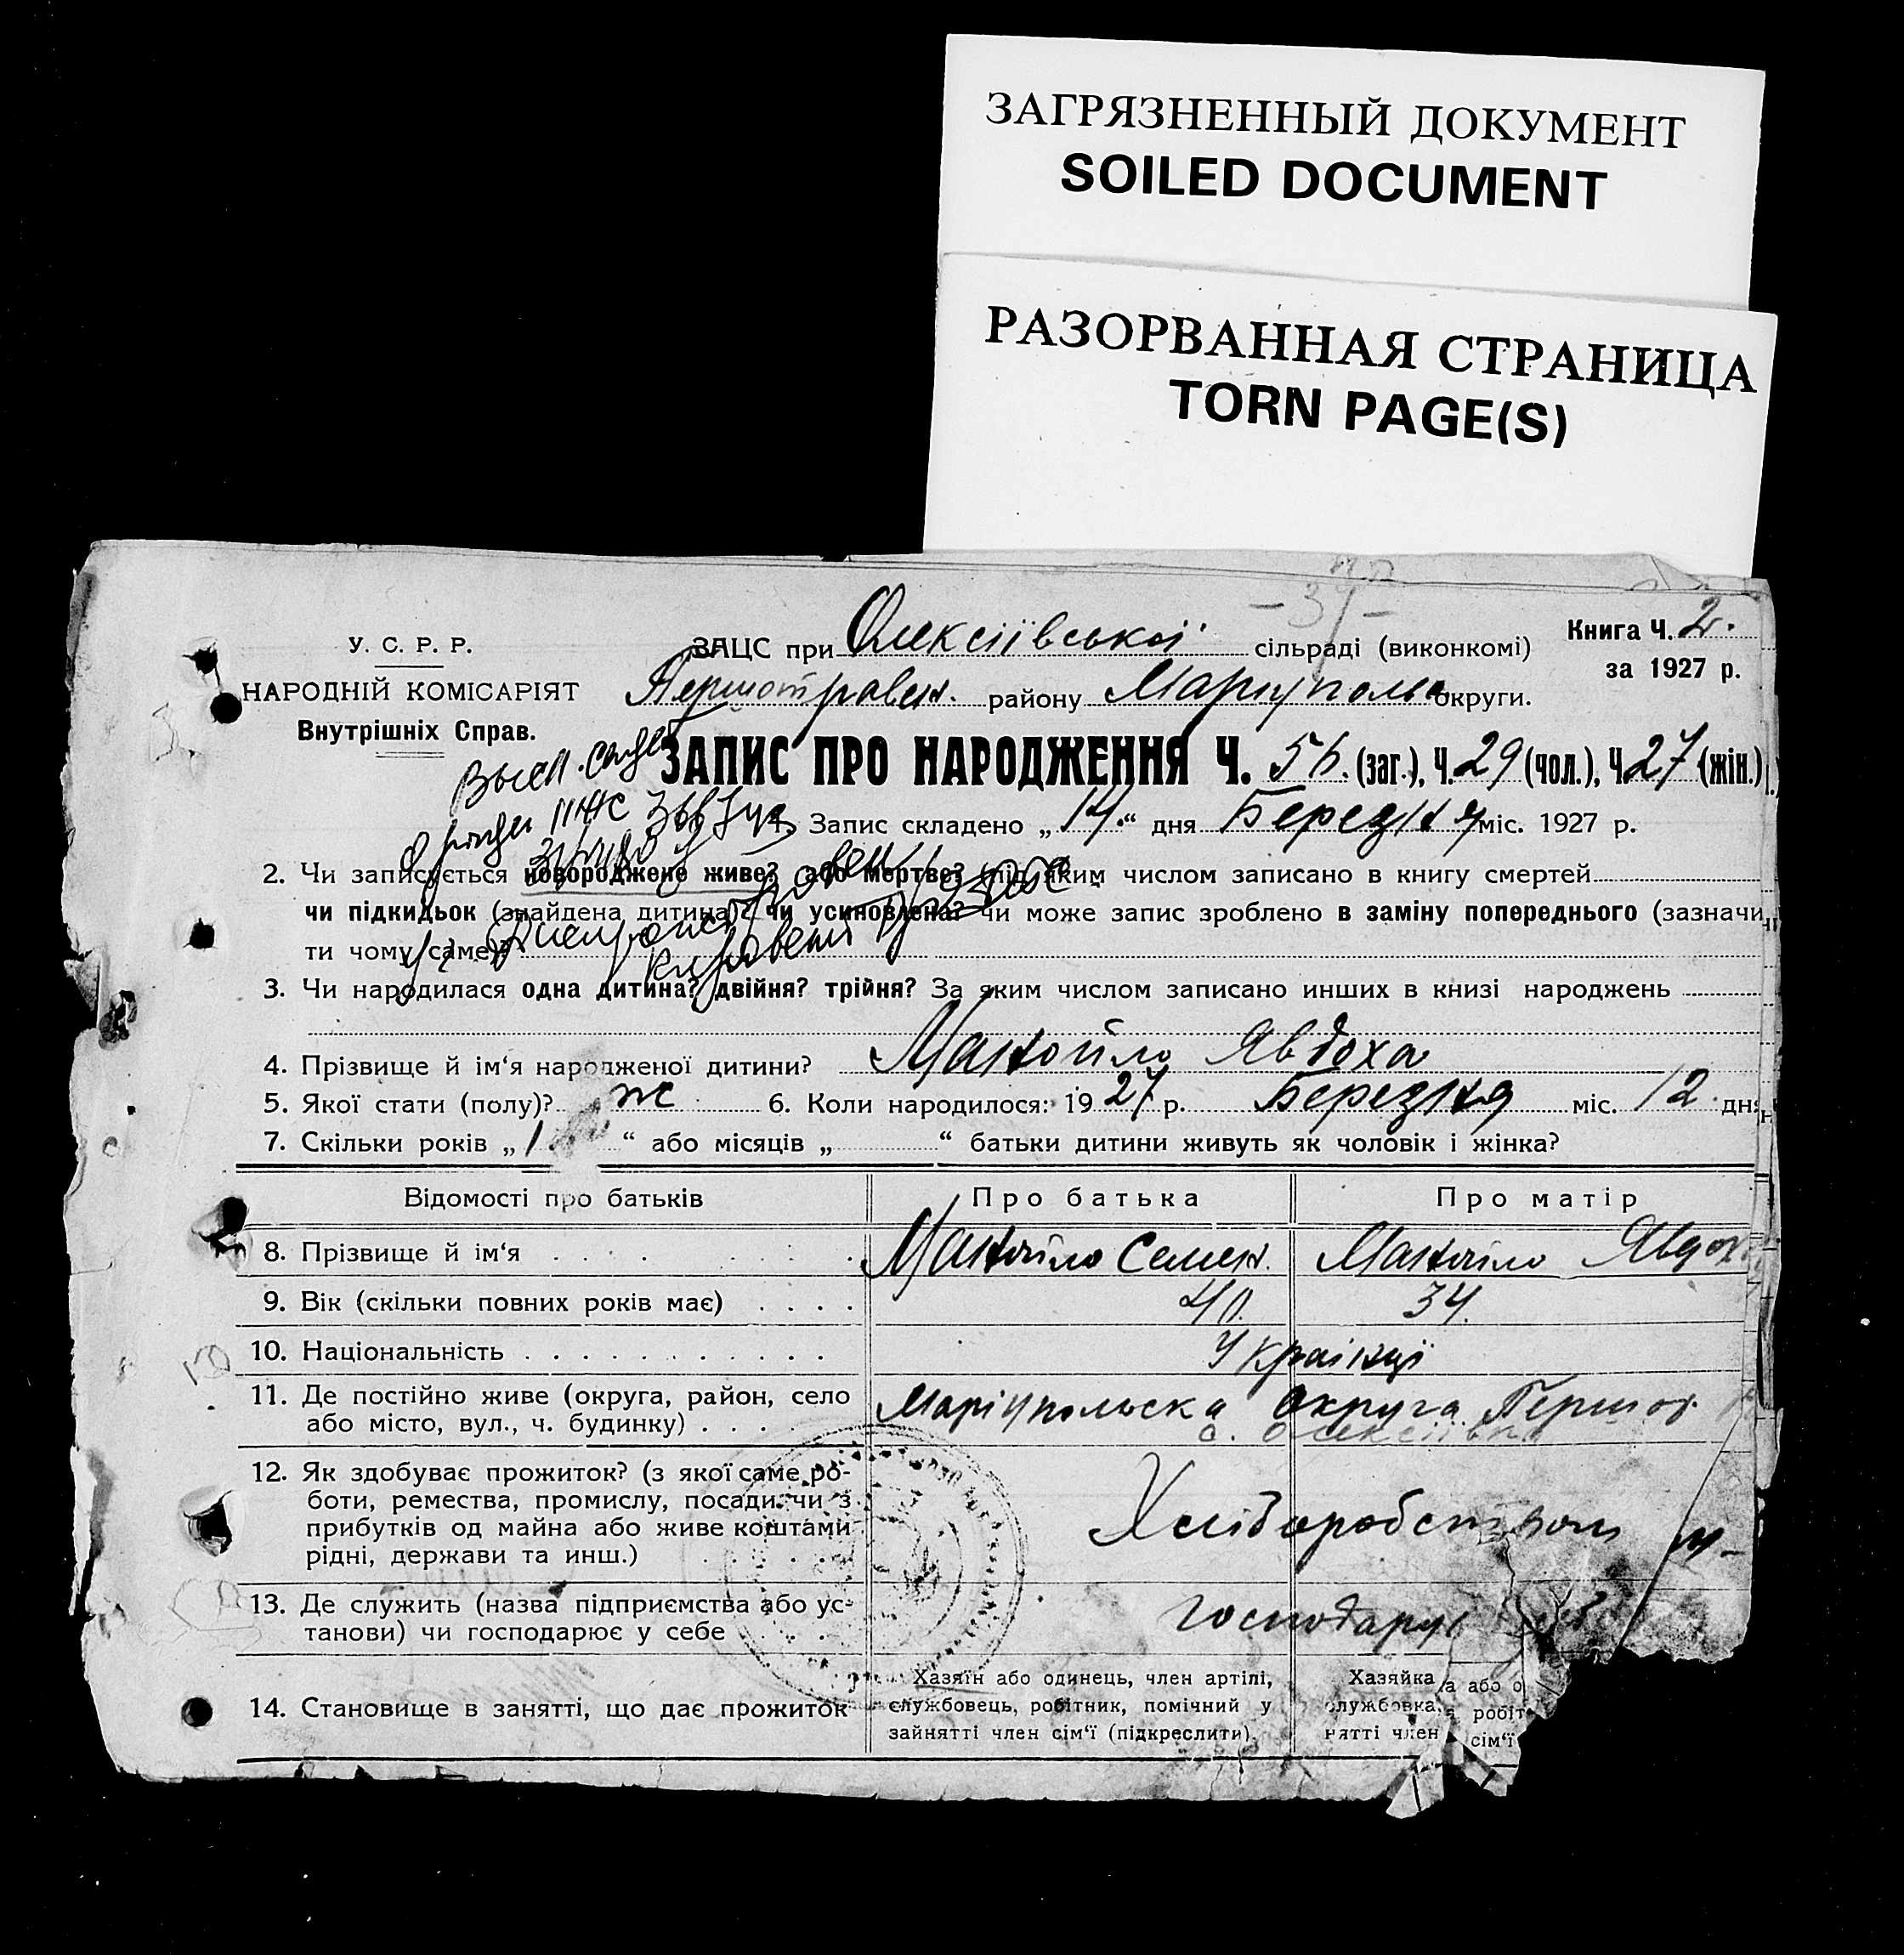 ЗАГРЯЗНЕННЫЙ ДОКУМЕНТ
SOILED DOCUMENT
РАЗОРВАННАЯ СТРАНИЦА
TORN PAGE(S)
У. С. Р. Р.
НАРОДНІЙ КОМІСАРІЯТ
Внутрішніх Справ.
ЗАЦС при Олексіївської сільраді (виконкомі)
Книга Ч. 2.
за 1927 р.
Першотравен. району Маріуполь округи.
ЗАПИС ПРО НАРОДЖЕННЯ Ч. 56. (заг.), Ч. 29 (чол.), Ч 27 (жін.)
1. Запис складено „14.“ дня Березня міс. 1927 р.
2. Чи записується новороджене живе? або мертве? під яким числом записано в книгу смертей
чи підкидьок (знайдена дитина)? чи усиновлена? чи може запис зроблено в заміну попереднього (зазначи
ти чому саме)?
3. Чи народилася одна дитина? двійня? трійня? За яким числом записано инших в книзі народжень
4. Прізвище й ім‘я народженої дитини? Манойло Явдоха
5. Якої стати (полу)? ж 6. Коли народилося: 1927 р. Березня міс. 12. дня
7. Скільки років „1 “ або місяців „ “ батьки дитини живуть як чоловік і жінка?
Відомості про батьків Про батька Про матір
8. Прізвище й ім‘я Манойло Семен. Манойло Явдох
9. Вік (скільки повних років має) 40. 34.
10. Національність Українці
11. Де постійно живе (округа, район, село Маріупольска округа Першот.
або місто, вул., ч. будинку) с. Олексіївка
12. Як здобуває прожиток? (з якої саме ро-
боти, ремества, промислу, посади чи з Хліборобством
прибутків од майна або живе коштами
рідні, держави та инш.)
13. Де служить (назва підприємства або ус- господарує
танови) чи господарює у себе
Хазяїн або одинець, член артілі, Хазяйка а або о
14. Становище в занятті, що дає прожиток службовець, робітник, помічний у службовка, робіт
зайнятті член сім‘ї (підкреслити). нятті член сім‘ї